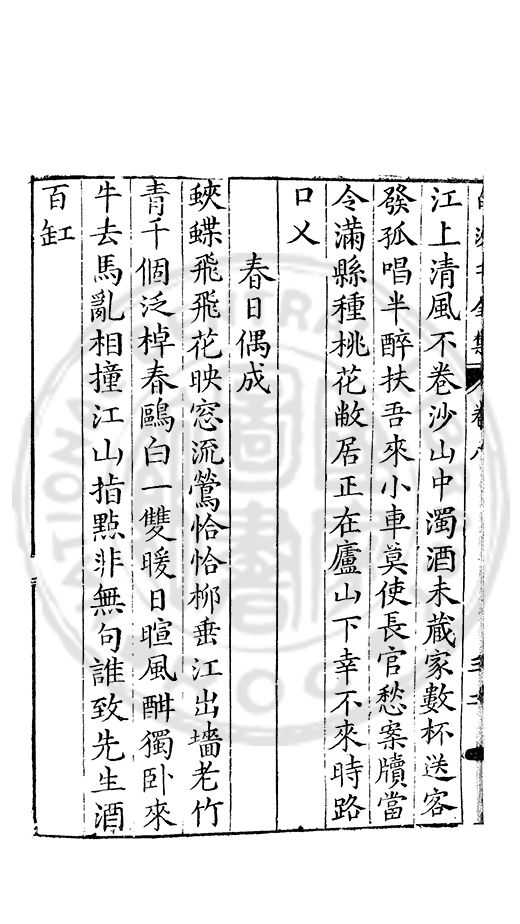 江上清風不卷沙山中濁酒未蔵家數杯送客
發孤唱半醉扶吾來小車莫使長官愁案牘當
令滿縣種桃花敝居正在廬山下幸不來時路
口乂
春日偶成
蛺蝶飛飛花映窓流鶯恰恰柳垂江出墻老竹
青千個泛棹春鷗白一雙暖日暄風酣獨卧來
牛去馬亂相撞江山指㸃非無句誰致先生酒
百缸